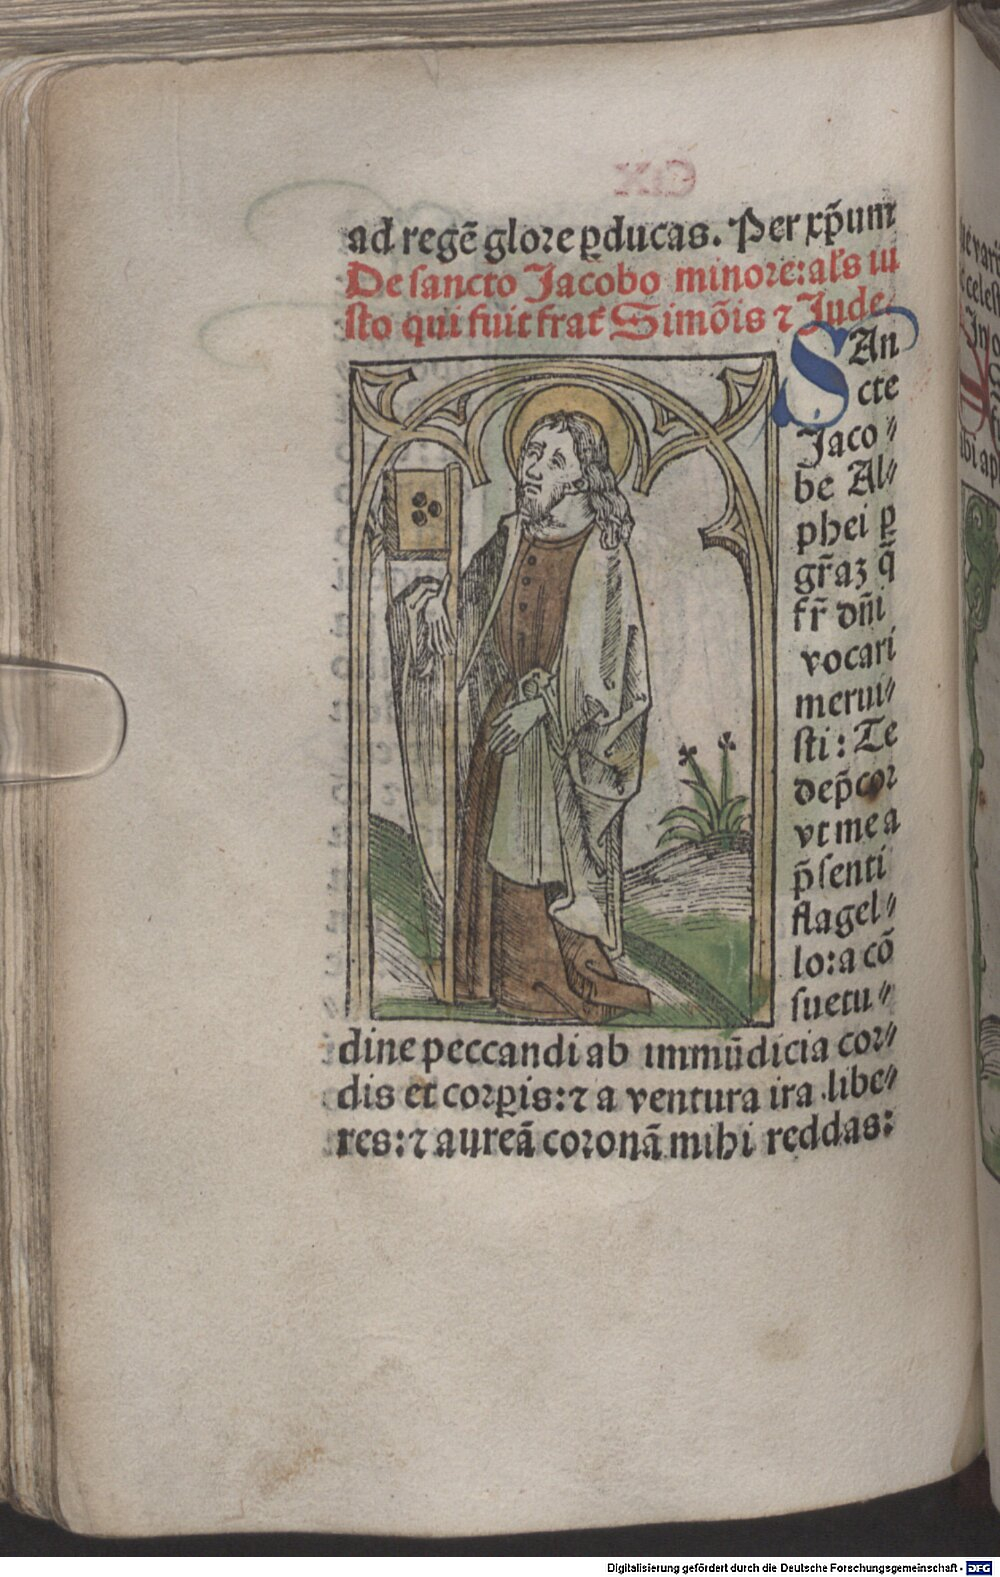 ad regē glorie ꝑducas. Per xp̄um
De sancto Jacobo minore: al's iu
sto qui fuit frat̄ Simōis ⁊ Jude
SAn
cte
Jaco〃
be Al〃
phei ꝑ
gr̄aꝫ q̄
fr̄ dn̄i
vocari
merui〃
sti: Te
dep̄cor
vt me a
p̄senti
flagel〃
lo: a cō
suetu〃
dine peccandi ab immūdicia cor〃
dis et corꝑis: ⁊ a ventura ira libe〃
res: ⁊ aureā coronā mihi reddas:
Digitalisierung gefördert durch die Deutsche Forschungsgemeinschaft - DFG